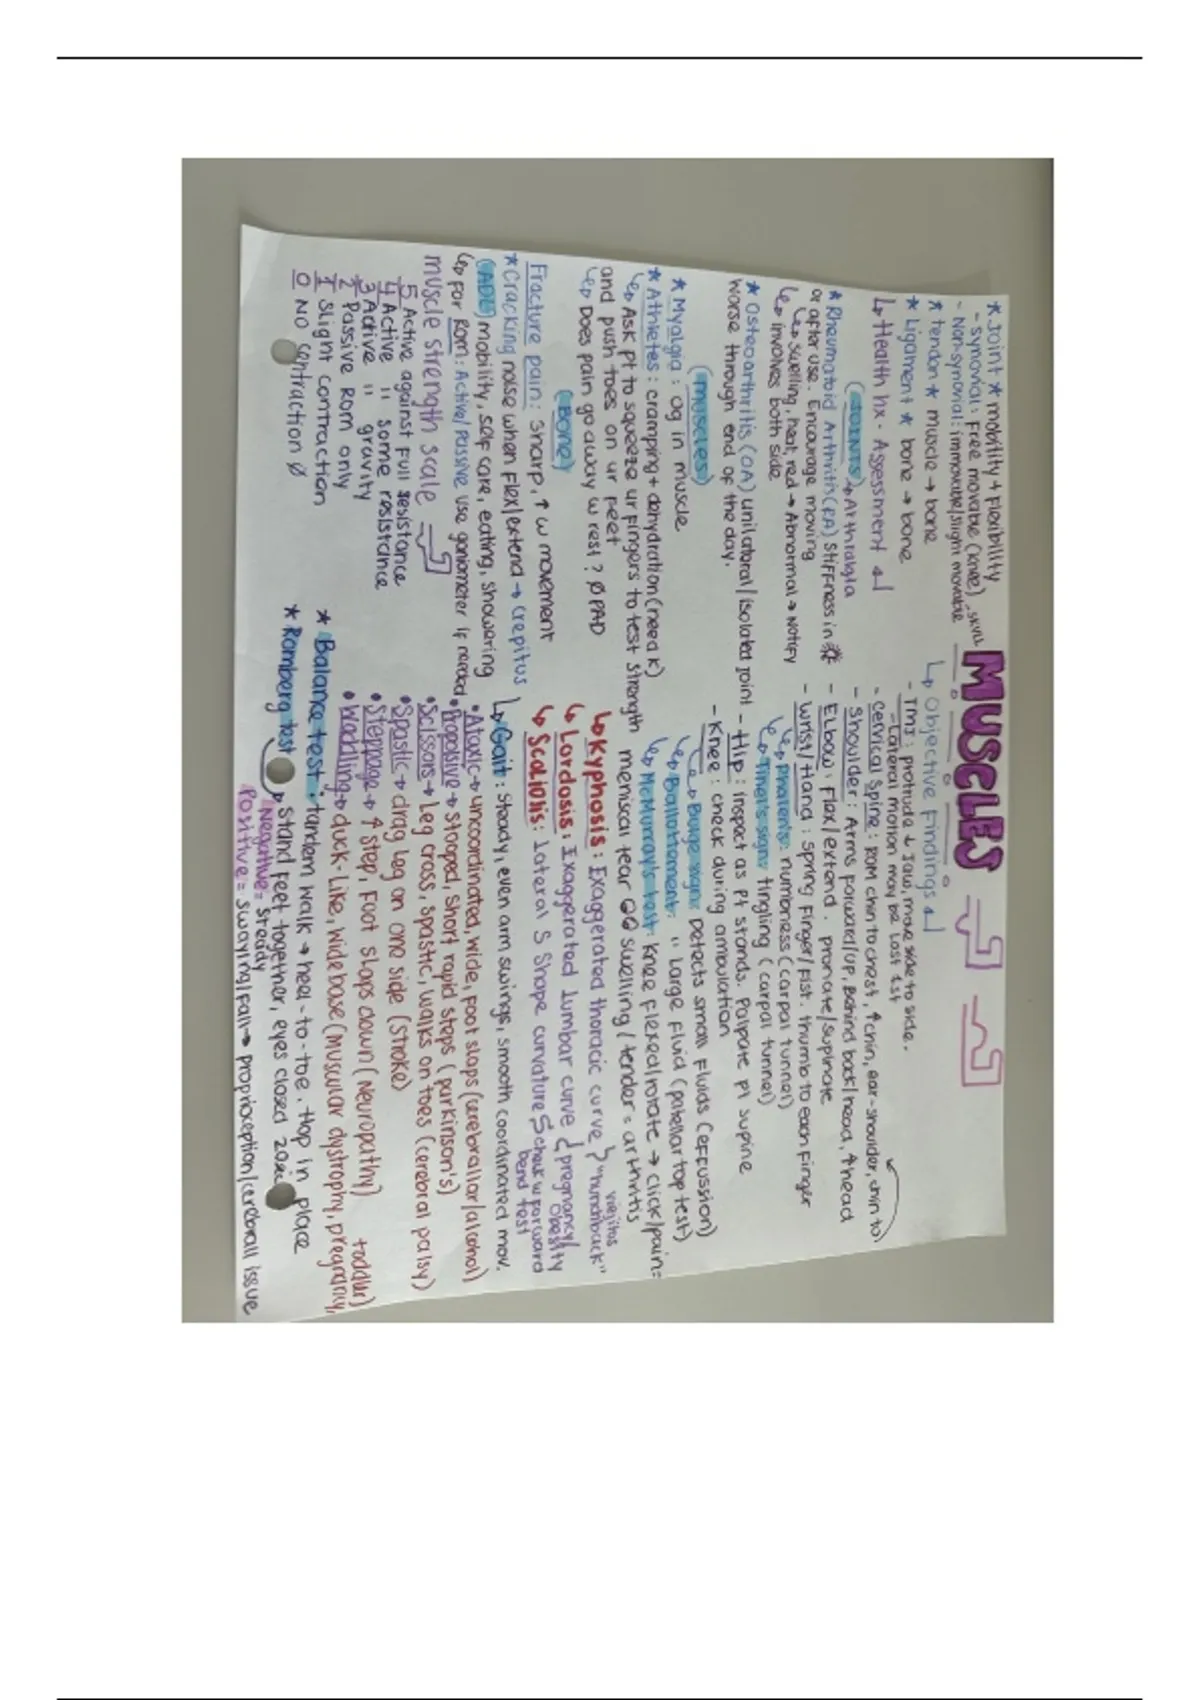 MUSCLES
* Joint * mobility + flexibility
- Synovial: Free movable (knee)
- Non-synovial: immovable/slight movable - skull
* tendon * muscle → bone
* Ligament * bone → bone
↳ Health hx - Assessment
(JOINTS) → Arthralgia
* Rheumatoid Arthritis (RA) stiffness in
or after use. Encourage moving
↳ swelling, heat, red → Abnormal → NOTIFY
↳ involves both side
* Osteoarthritis (OA) unilateral/isolated joint
worse through end of the day.
(muscles)
* Myalgia: og in muscle
* Athletes: cramping + dehydration (need K)
↳ Ask pt to squeeze ur fingers to test strength
and push toes on ur feet
↳ Does pain go away w rest? Ø PAD
(Bone)
Fracture pain: sharp, ↑ w movement
* Cracking noise when flex/extend → crepitus
(ADL) mobility, self care, eating, showering
↳ For ROM: Active/Passive use goniometer if needed
muscle strength scale
5 Active against Full resistance
4 Active " some resistance
3 Active " gravity
2 Passive ROM only
1 Slight contraction
0 NO contraction Ø
↳ Objective Findings
- TMJ: protrude ↓ jaw, move side to side.
- Lateral motion may be lost 1st
- Cervical Spine: ROM chin to chest, ↑chin, ear-shoulder, chin to
- Shoulder: Arms forward/up, Behind back/head, ↑head
- Elbow: Flex/extend. pronate/supinate
- Wrist/Hand: Spring Finger/Fist. thumb to each Finger
↳ Phalen's: numbness (carpal tunnel)
↳ Tinel's sign: tingling (carpal tunnel)
- Hip: inspect as pt stands. Palpate pt supine
- Knee: check during ambulation
↳ Bulge sign: Detects small fluids (effussion)
↳ Ballottement: " Large Fluid (patellar top test)
↳ McMurray's test: Knee flexed/rotate → click/pain =
meniscal tear swelling/tender = arthritis
↳ Kyphosis: Exaggerated thoracic curve } "hunchback" viejitos
↳ Lordosis: Exaggerated lumbar curve { pregnancy/obesity
↳ Scoliolis: lateral S Shape curvature S check w forward bend test
↳ Gait: Steady, even arm swings, smooth coordinated mov.
• Ataxic → uncoordinated, wide, foot slaps (cerebrallar/alcohol)
• Propolsive → stooped, short rapid steps (parkinson's)
• Scissors → Leg cross, spastic, walks on toes (cerebral palsy)
• Spastic → drag leg on one side (stroke)
• Steppage → ↑ step, Foot slaps down (Neuropathy)
• Waddling → duck-like, wide base (muscular dystrophy, pregnancy, toddler)
* Balance test: tandem walk → heel-to-toe. Hop in place
* Romberg test → stand feet together, eyes closed
Negative = Steady
Positive = swaying/fall → proprioception/cerebrall issue